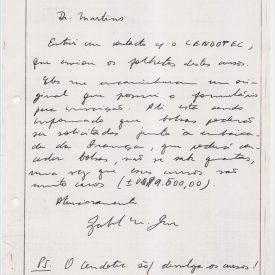 Dr. Martins
Entrei em contato c/ o CENDOTEC,
que enviou os folhetos destes cursos.
Eles me encaminharam um ori-
ginal que possui o formulário
para inscrição. Ali está sendo
informado que bolsas poderão
ser solicitadas junto à embaixa-
da da França, que poderá con-
ceder bolsas, não se sabe quantas,
uma vez que esses cursos são
muito caros (± US$ 9.600,00).
Atenciosamente
PS. O Cendotec só divulga os cursos!